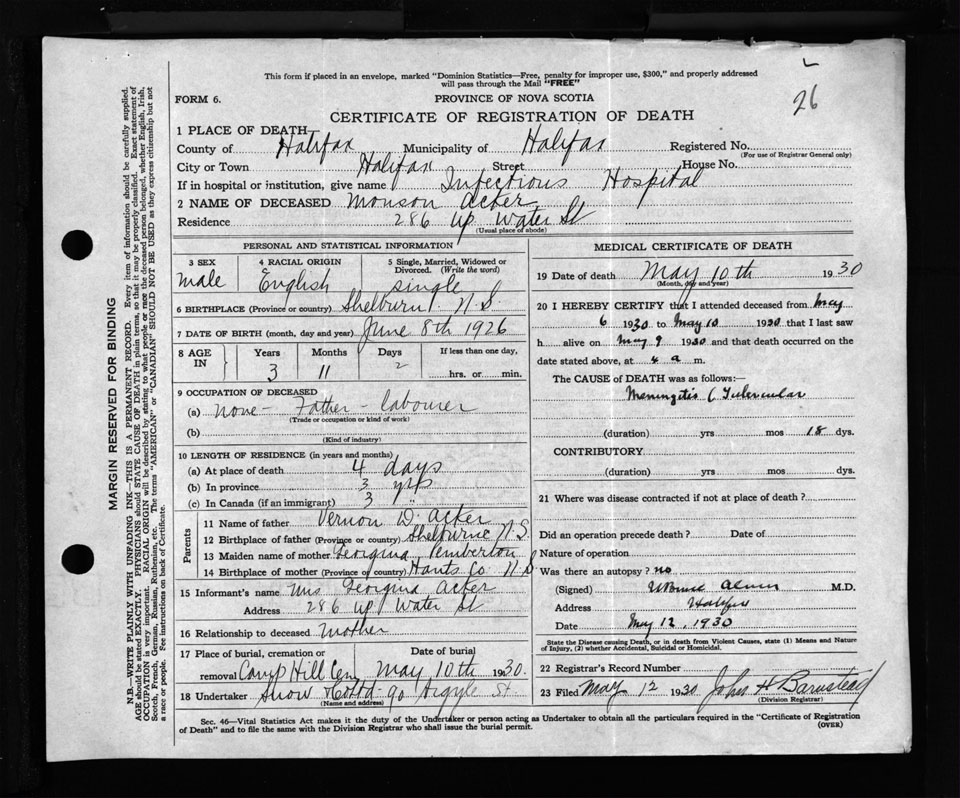 This form if placed in an envelope, marked "Dominion Statistics—Free, penalty for improper use, $300," and properly addressed
will pass through the Mail "FREE"
FORM 6.
PROVINCE OF NOVA SCOTIA
26
CERTIFICATE OF REGISTRATION OF DEATH
1 PLACE OF DEATH
County of Halifax Municipality of Halifax Registered No.
(For use of Registrar General only)
City or Town Halifax Street House No.
If in hospital or institution, give name Infectious Hospital
2 NAME OF DECEASED Monson Acker
Residence 286 Up Water St
(Usual place of abode)
PERSONAL AND STATISTICAL INFORMATION
3 SEX 4 RACIAL ORIGIN 5 Single, Married, Widowed or Divorced. (Write the word)
male English single
6 BIRTHPLACE (Province or country) Shelburn N.S.
7 DATE OF BIRTH (month, day and year) June 8th 1926
8 AGE IN Years Months Days If less than one day,
3 11 2 hrs. or min.
9 OCCUPATION OF DECEASED
(a) None - Father labourer
(Trade or occupation or kind of work)
(b)
(Kind of industry)
10 LENGTH OF RESIDENCE (in years and months)
(a) At place of death 4 days
(b) In province 3 yrs
(c) In Canada (if an immigrant) 3 "
Parents
11 Name of father Vernon D. Acker
12 Birthplace of father (Province or country) Shelburne N.S.
13 Maiden name of mother Georgina Pemberton
14 Birthplace of mother (Province or country) Hants Co N.S
15 Informant's name Mrs Georgina Acker
Address 286 Up Water St
16 Relationship to deceased Mother
17 Place of burial, cremation or Date of burial
removal Camp Hill Cem May 10th 1930.
18 Undertaker Snow & Co Ltd 90 Argyle St
(Name and address)
MEDICAL CERTIFICATE OF DEATH
19 Date of death May 10th 1930
(Month, day and year)
20 I HEREBY CERTIFY that I attended deceased from May
6 1930 to May 10 1930 that I last saw
h alive on May 9 1930 and that death occurred on the
date stated above, at 4 a m.
The CAUSE OF DEATH was as follows:—
Meningitis (Tubercular
(duration) yrs mos 18 dys.
CONTRIBUTORY
(duration) yrs mos dys.
21 Where was disease contracted if not at place of death?
Did an operation precede death? Date of
Nature of operation
Was there an autopsy? no
(Signed) M.D.
Address Halifax
Date May 12, 1930
State the Disease causing Death, or in death from Violent Causes, state (1) Means and Nature
of Injury, (2) whether Accidental, Suicidal or Homicidal.
22 Registrar's Record Number
23 Filed May 12 1930 John H Barnstead
(Division Registrar)
Sec. 46—Vital Statistics Act makes it the duty of the Undertaker or person acting as Undertaker to obtain all the particulars required in the "Certificate of Registration
of Death" and to file the same with the Division Registrar who shall issue the burial permit.
(OVER)
MARGIN RESERVED FOR BINDING
N.B.—WRITE PLAINLY WITH UNFADING INK—THIS IS A PERMANENT RECORD. Every item of information should be carefully supplied.
AGE should be stated EXACTLY. PHYSICIANS should STATE CAUSE OF DEATH in plain terms, so that it may be properly classified. Exact statement of
OCCUPATION is very important. RACIAL ORIGIN will be described by stating to what people or race the deceased person belonged, whether English, Irish,
Scotch, French, German, Russian, Ruthenian, etc. The terms "AMERICAN" or "CANADIAN" SHOULD NOT BE USED as they express citizenship but not
a race or people. See instructions on back of Certificate.